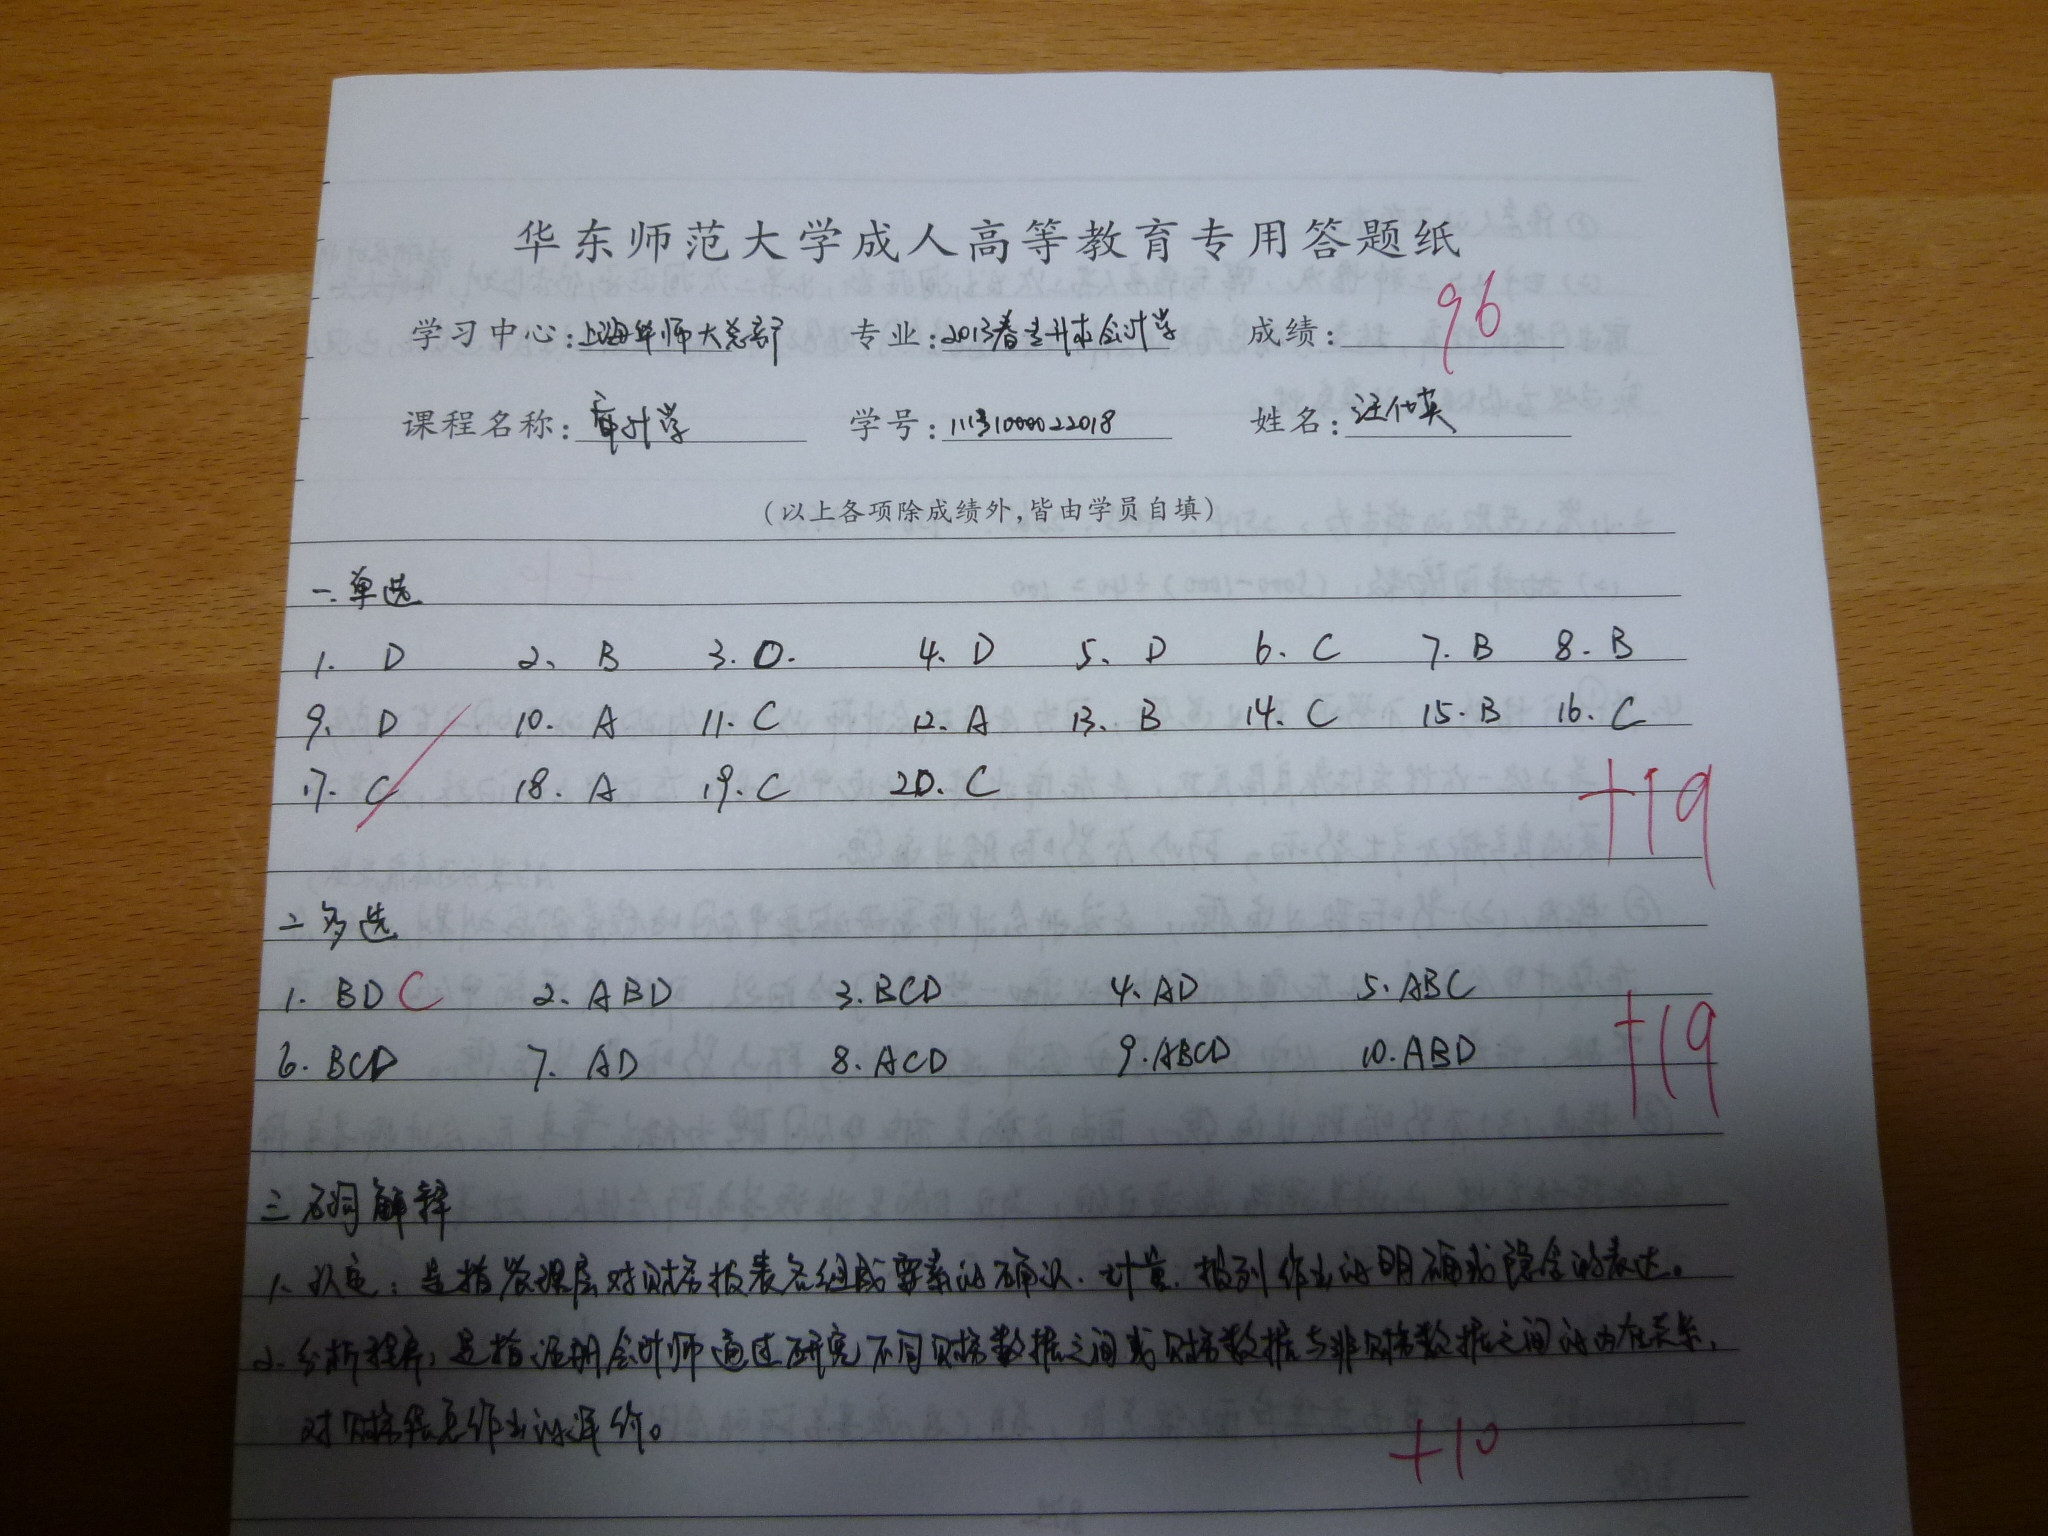 华东师范大学成人高等教育专用答题纸
学习中心:上海华师大总部 专业:2013春专升本会计学 成绩:96
课程名称:审计学 学号:11131000022018 姓名:汪仕英
(以上各项除成绩外,皆由学员自填)
一.单选
1. D 2、 B 3. D. 4. D 5、 D 6. C 7. B 8. B
9. D 10. A 11. C 12. A 13. B 14. C 15. B 16. C
17. C 18. A 19. C 20. C +19
二多选
1. BD C 2. ABD 3. BCD 4. AD 5. ABC
6. BCD 7. AD 8. ACD 9. ABCD 10. ABD +19
三名词解释
1. 认定:是指管理层对财务报表各组成要素的确认、计量、报列作出的明确或隐含的表达。
2. 分析程序:是指注册会计师通过研究不同财务数据之间或财务数据与非财务数据之间的内在关系,
对财务信息作出的评价。
+10